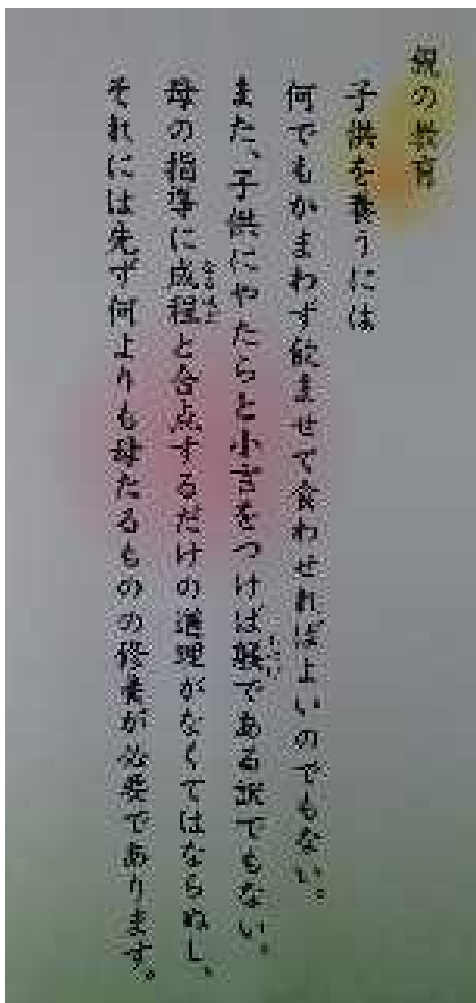 親の教育
子供を養うには
何でもかまわず飲ませて食わせればよいのでもない。
また、子供にやたらと小言をつければ躾である訳でもない。
母の指導に成程と合点するだけの道理がなくてはならぬし、
それには先ず何よりも母たるものの修養が必要であります。